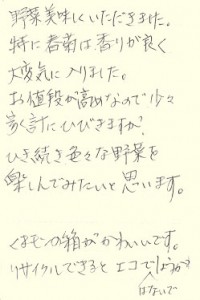 野菜美味しくいただきました。
特に春菊は香りが良く
大変気に入りました。
お値段が高めなので少々
家計にひびきますが、
ひき続き色々な野菜を
楽しんでみたいと思います。
くまモンの箱がかわいいです。
リサイクルできるとエコで
はないで
しょうか